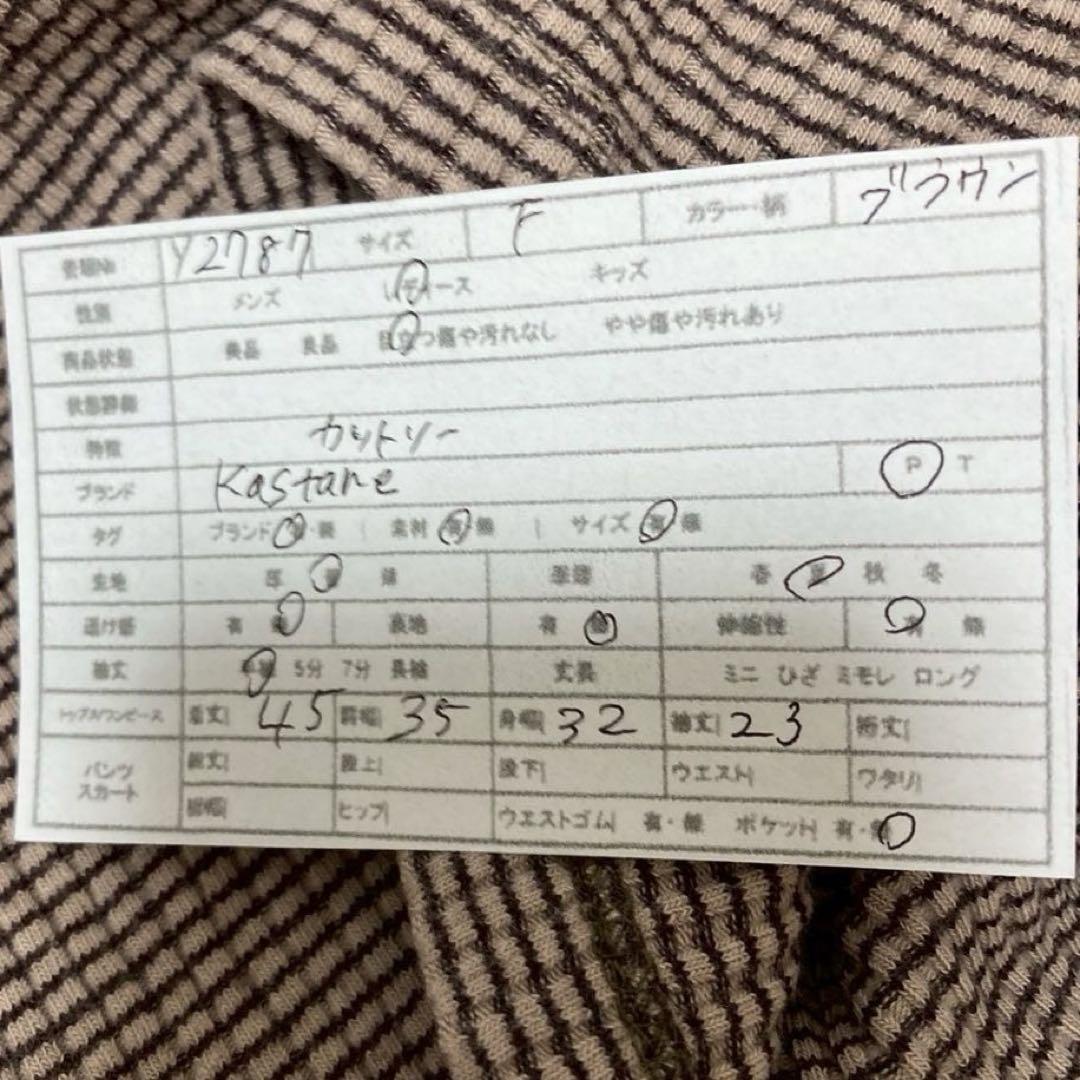 管理No Y2787 サイズ F カラー・柄 ブラウン
性別 メンズ レディース キッズ
商品状態 美品 良品 目立つ傷や汚れなし やや傷や汚れあり
状態詳細
特徴 カットソー
ブランド Kastane P T
タグ ブランド 有・無 | 素材 有・無 | サイズ 有・無
生地 厚 普 薄 季節 春 夏 秋 冬
透け感 有 無 裏地 有 無 伸縮性 有 無
袖丈 半袖 5分 7分 長袖 丈長 ミニ ひざ ミモレ ロング
トップス/ワンピース 着丈| 45 肩幅| 35 身幅| 32 袖丈| 23 裄丈|
パンツ スカート 総丈| 股上| 股下| ウエスト| ワタリ|
裾幅| ヒップ| ウエストゴム| 有・無 ポケット| 有・無